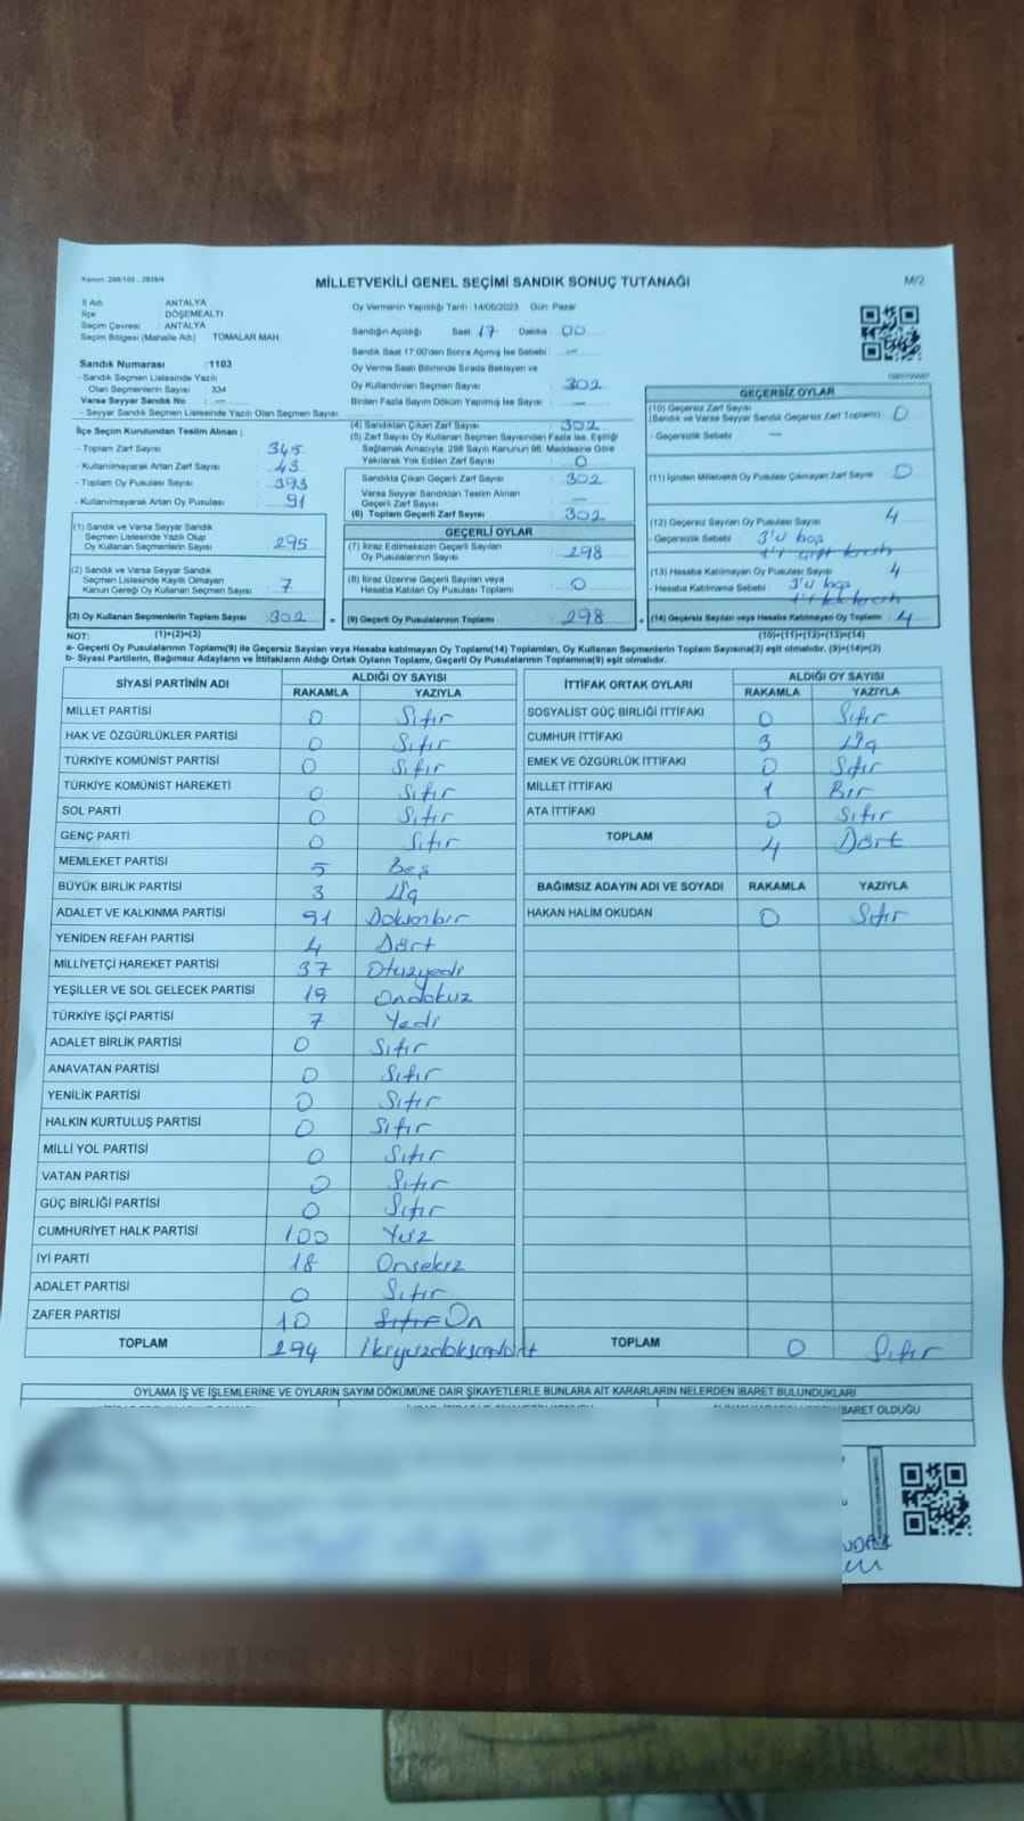 MİLLETVEKİLİ GENEL SEÇİMİ SANDIK SONUÇ TUTANAĞI
M/2
İl Adı ANTALYA
İlçe DÖŞEMEALTI
Seçim Çevresi ANTALYA
Seçim Bölgesi (Mahalle Adı) TOMALAR MAH.
Oy Vermenin Yapıldığı Tarih : 14/05/2023 Gün: Pazar
Sandığın Açıldığı Saat 17 Dakika 00
Sandık Saat 17:00'den Sonra Açılmış İse Sebebi : —
Oy Verme Saati Bitiminde Sırada Bekleyen ve
Oy Kullandırılan Seçmen Sayısı 302
Birden Fazla Sayım Döküm Yapılmış İse Sayısı —
Sandık Numarası : 1103
- Sandık Seçmen Listesinde Yazılı
Olan Seçmenlerin Sayısı 334
Varsa Seyyar Sandık No : —
- Seyyar Sandık Seçmen Listesinde Yazılı Olan Seçmen Sayısı
İlçe Seçim Kurulundan Teslim Alınan :
- Toplam Zarf Sayısı 345
- Kullanılmayarak Artan Zarf Sayısı 43
- Toplam Oy Pusulası Sayısı 393
- Kullanılmayarak Artan Oy Pusulası 91
(1) Sandık ve Varsa Seyyar Sandık
Seçmen Listesinde Yazılı Olup
Oy Kullanan Seçmenlerin Sayısı 295
(2) Sandık ve Varsa Seyyar Sandık
Seçmen Listesinde Kayıtlı Olmayan
Kanun Gereği Oy Kullanan Seçmen Sayısı 7
(3) Oy Kullanan Seçmenlerin Toplam Sayısı 302
(1)+(2)=(3)
(4) Sandıktan Çıkan Zarf Sayısı 302
(5) Zarf Sayısı Oy Kullanan Seçmen Sayısından Fazla İse, Eşitliği
Sağlamak Amacıyla, 298 Sayılı Kanunun 98. Maddesine Göre
Yakılarak Yok Edilen Zarf Sayısı 0
Sandıkta Çıkan Geçerli Zarf Sayısı 302
Varsa Seyyar Sandıktan Teslim Alınan
Geçerli Zarf Sayısı —
(6) Toplam Geçerli Zarf Sayısı 302
GEÇERLİ OYLAR
(7) İtiraz Edilmeksizin Geçerli Sayılan
Oy Pusulalarının Sayısı 298
(8) İtiraz Üzerine Geçerli Sayılan veya
Hesaba Katılan Oy Pusulası Toplamı 0
(9) Geçerli Oy Pusulalarının Toplamı 298
GEÇERSİZ OYLAR
(10) Geçersiz Zarf Sayısı
(Sandık ve Varsa Seyyar Sandık Geçersiz Zarf Toplamı) 0
- Geçersizlik Sebebi —
(11) İçinden Milletvekili Oy Pusulası Çıkmayan Zarf Sayısı 0
(12) Geçersiz Sayılan Oy Pusulası Sayısı 4
- Geçersizlik Sebebi 3'ü boş
(13) Hesaba Katılmayan Oy Pusulası Sayısı 4
- Hesaba Katılmama Sebebi 3'ü boş
(14) Geçersiz Sayılan veya Hesaba Katılmayan Oy Toplamı 4
(10)+(11)+(12)+(13)=(14)
NOT:
a- Geçerli Oy Pusulalarının Toplamı(9) ile Geçersiz Sayılan veya Hesaba katılmayan Oy Toplamı(14) Toplamları, Oy Kullanan Seçmenlerin Toplam Sayısına(3) eşit olmalıdır. (9)+(14)=(3)
b- Siyasi Partilerin, Bağımsız Adayların ve İttifakların Aldığı Ortak Oyların Toplamı, Geçerli Oy Pusulalarının Toplamına(9) eşit olmalıdır.
SİYASİ PARTİNİN ADI ALDIĞI OY SAYISI
RAKAMLA YAZIYLA
MİLLET PARTİSİ 0 Sıfır
HAK VE ÖZGÜRLÜKLER PARTİSİ 0 Sıfır
TÜRKİYE KOMÜNİST PARTİSİ 0 Sıfır
TÜRKİYE KOMÜNİST HAREKETİ 0 Sıfır
SOL PARTİ 0 Sıfır
GENÇ PARTİ 0 Sıfır
MEMLEKET PARTİSİ 5 Beş
BÜYÜK BİRLİK PARTİSİ 3 Üç
ADALET VE KALKINMA PARTİSİ 91 Doksanbir
YENİDEN REFAH PARTİSİ 4 Dört
MİLLİYETÇİ HAREKET PARTİSİ 37 Otuzyedi
YEŞİLLER VE SOL GELECEK PARTİSİ 19 Ondokuz
TÜRKİYE İŞÇİ PARTİSİ 7 Yedi
ADALET BİRLİK PARTİSİ 0 Sıfır
ANAVATAN PARTİSİ 0 Sıfır
YENİLİK PARTİSİ 0 Sıfır
HALKIN KURTULUŞ PARTİSİ 0 Sıfır
MİLLİ YOL PARTİSİ 0 Sıfır
VATAN PARTİSİ 0 Sıfır
GÜÇ BİRLİĞİ PARTİSİ 0 Sıfır
CUMHURİYET HALK PARTİSİ 100 Yüz
İYİ PARTİ 18 Onsekiz
ADALET PARTİSİ 0 Sıfır
ZAFER PARTİSİ 10 Sıfır On
TOPLAM 294 İkiyüzdoksandört
İTTİFAK ORTAK OYLARI ALDIĞI OY SAYISI
RAKAMLA YAZIYLA
SOSYALİST GÜÇ BİRLİĞİ İTTİFAKI 0 Sıfır
CUMHUR İTTİFAKI 3 Üç
EMEK VE ÖZGÜRLÜK İTTİFAKI 0 Sıfır
MİLLET İTTİFAKI 1 Bir
ATA İTTİFAKI 0 Sıfır
TOPLAM 4 Dört
BAĞIMSIZ ADAYIN ADI VE SOYADI RAKAMLA YAZIYLA
HAKAN HALİM OKUDAN 0 Sıfır
TOPLAM 0 Sıfır
OYLAMA İŞ VE İŞLEMLERİNE VE OYLARIN SAYIM DÖKÜMÜNE DAİR ŞİKAYETLERLE BUNLARA AİT KARARLARIN NELERDEN İBARET BULUNDUKLARI
İBARET OLDUĞU